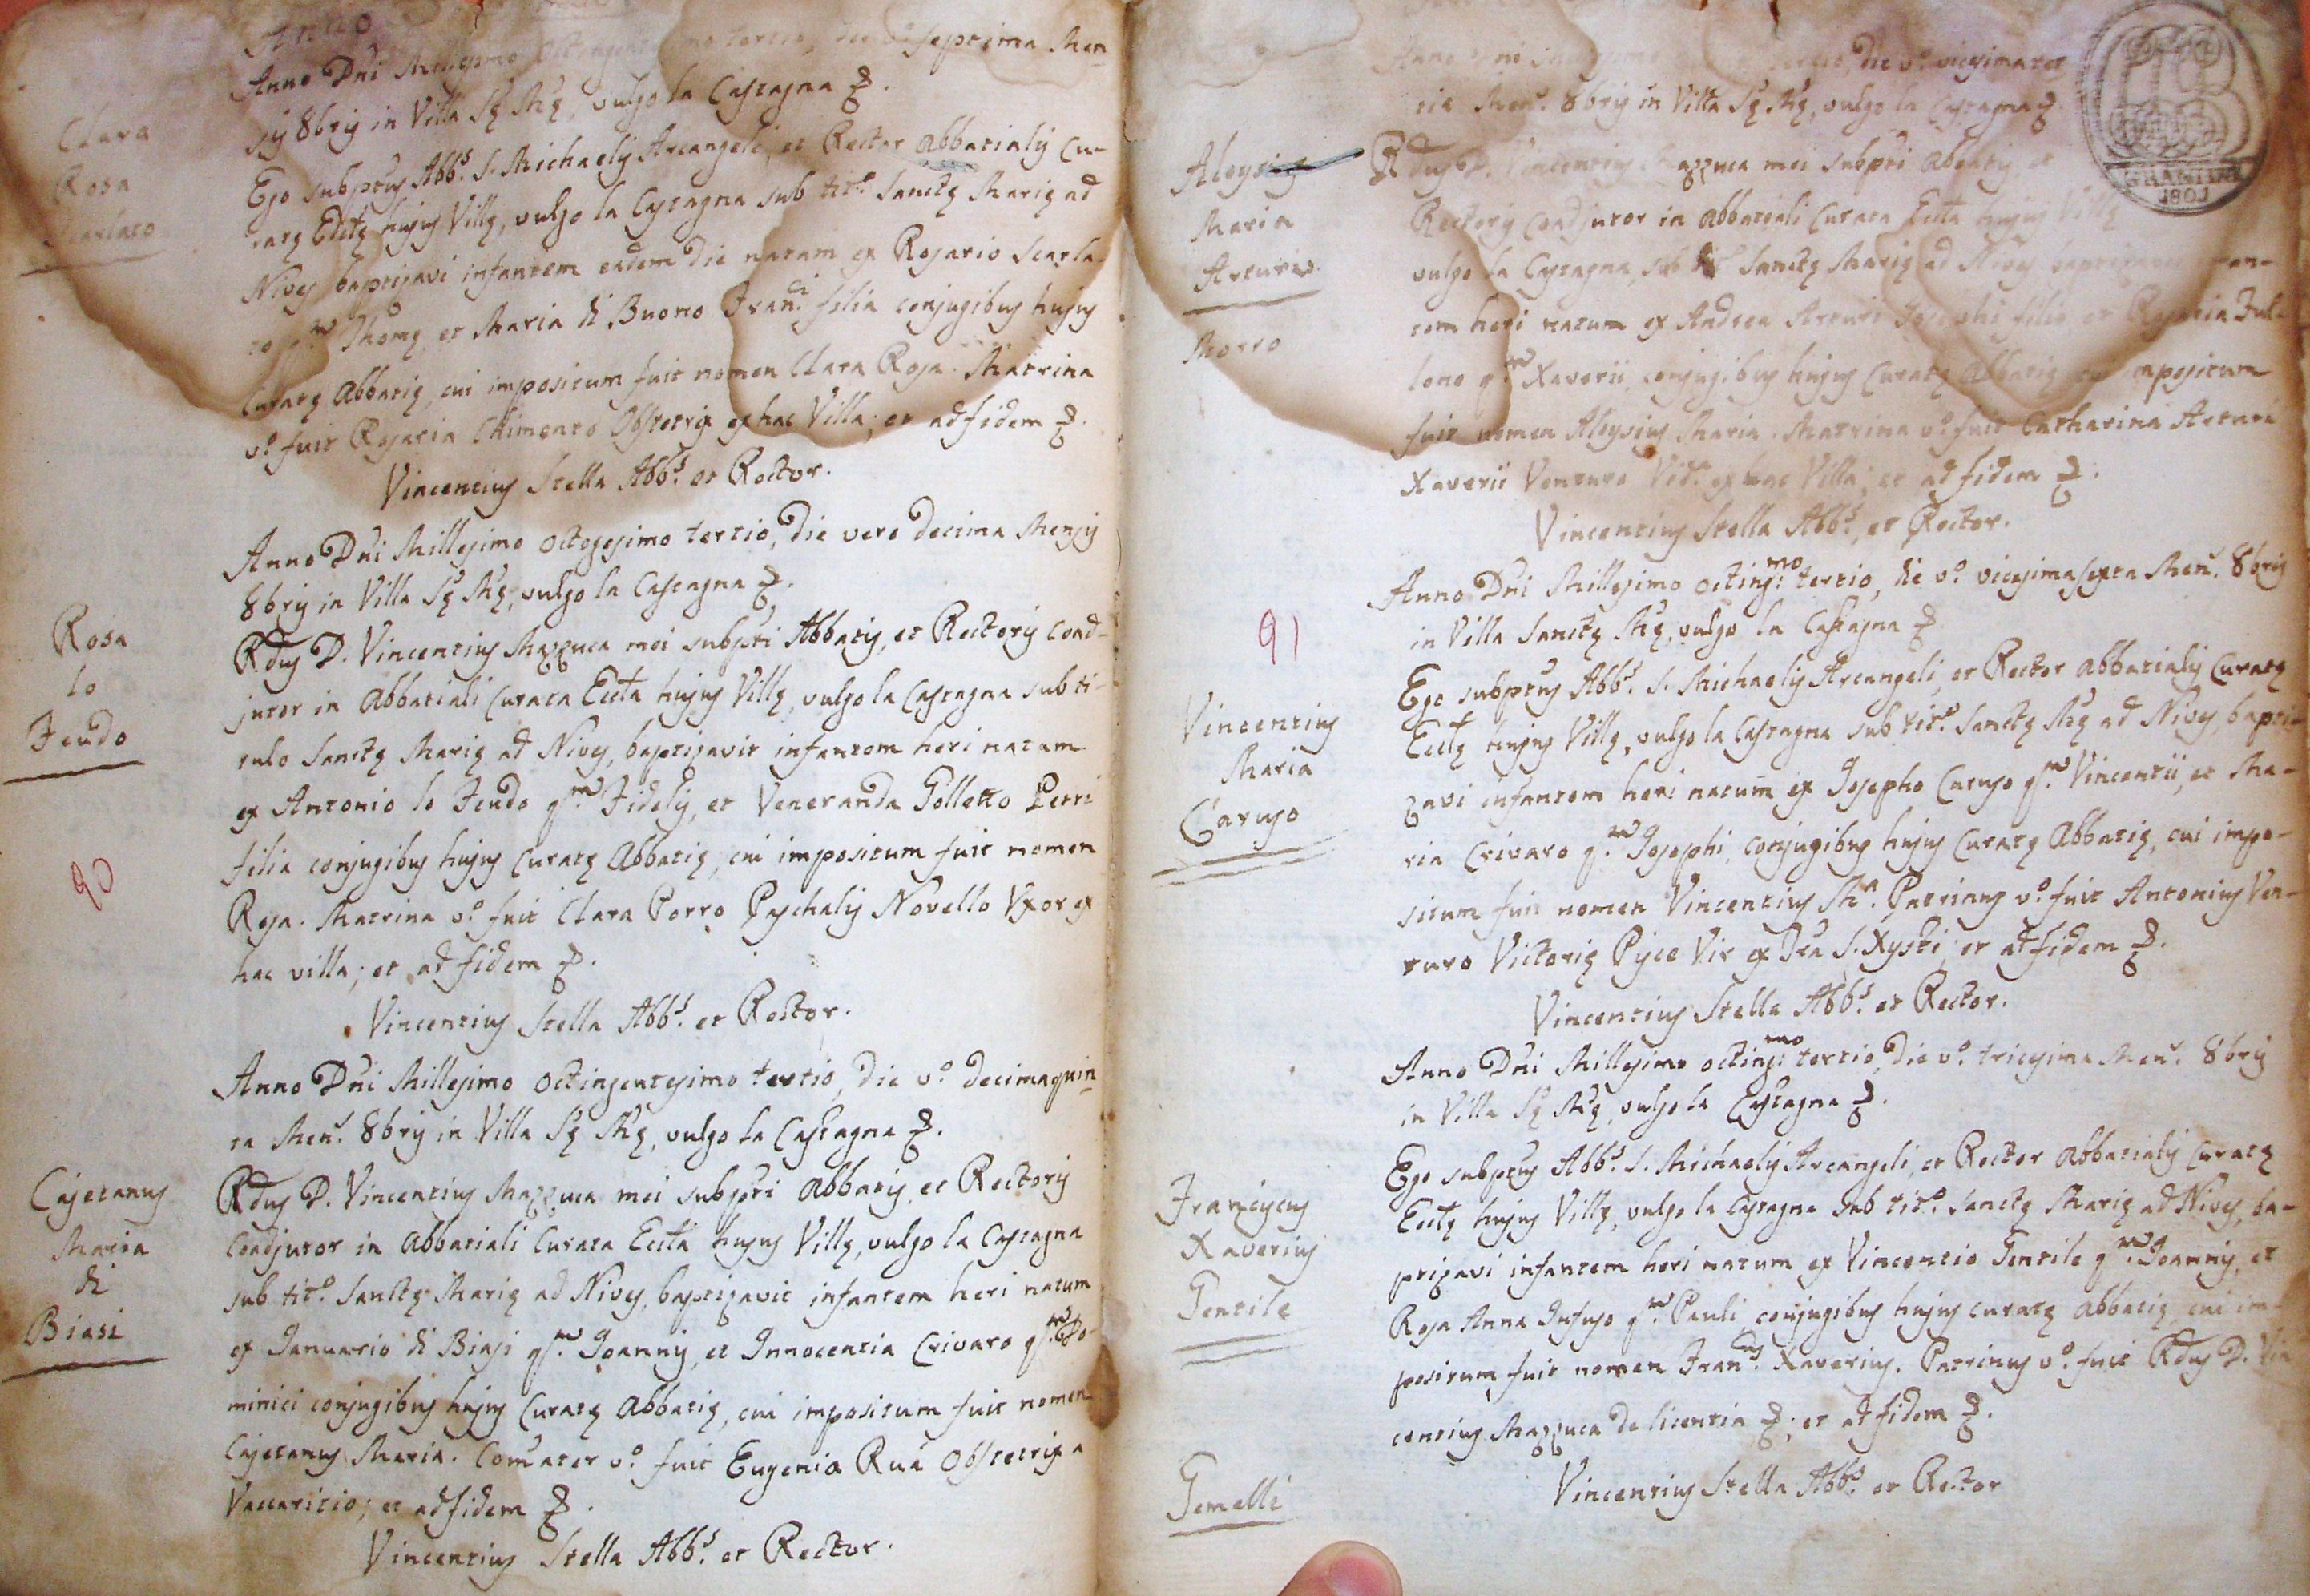 Clara
Rosa
Scarlato
Anno
Anno Dñi Millesimo tertio, septima Men-
sis 8bris in Villa Sę Mę, vulgo la Castagna &.
Ego subptus Abbs. S. Michaelis Arcangeli, et Rector Abbatialis Cu-
ratę Ecctę hujus Villę, vulgo la Castagna sub titº. Sanctę Marię ad
Nives baptizavi infantem eadem die natam ex Rosario Scarla-
to qm. Thomę, et Maria di Buono Franci. filia conjugibus hujus
Curatę Abbatię, cui impositum fuit nomen Clara Rosa. Matrina
vº. fuit Rosaria Chimento Obstetrix ex hac Villa; et ad fidem &.
Vincentius Stella Abbs. et Rector.
Rosa
lo
Feudo
Anno Dñi Millesimo octogesimo tertio, die vero decima Mensis
8bris in Villa Sę Mę, vulgo la Castagna &.
Rdus D. Vincentius Mazzuca mei subpti Abbatis, et Rectoris Coad-
jutor in Abbatiali Curata Eccta hujus Villę, vulgo la Castagna sub ti-
tulo Sanctę Marię ad Nives, baptizavit infantem heri natam
ex Antonio lo Feudo qm. Fidelis, et Veneranda Golletto Petri
filia conjugibus hujus Curatę Abbatię, cui impositum fuit nomen
Rosa. Matrina vº. fuit Clara Porro Paschalis Novello Uxor ex
hac villa; et ad fidem &.
Vincentius Stella Abbs. et Rector.
90
Cajetanus
Maria
di
Biasi
Anno Dñi Millesimo octingentesimo tertio, die vº. decimaquin-
ta Mens. 8bris in Villa Sę Mę, vulgo la Castagna &.
Rdus D. Vincentius Mazzuca mei subpti Abbatis, et Rectoris
Coadjutor in Abbatiali Curata Eccta hujus Villę, vulgo la Castagna
sub titº. Sanctę Marię ad Nives, baptizavit infantem heri natum
ex Januario di Biasi qm. Joannis, et Innocentia Crivaro qm. Do-
minici conjugibus hujus Curatę Abbatię, cui impositum fuit nomen
Cajetanus Maria. Comater vº. fuit Eugenia Rua Obstetrix a
Vaccaritio; et ad fidem &.
Vincentius Stella Abbs. et Rector.
Aloysius
Maria
Arturo
Morto
die vº. vicesimater-
tia Mens. 8bris in Villa Sę Mę, vulgo la Castagna &.
Rdus D. Vincentius Mazzuca mei subpti Abbatis, et
Rectoris Coadjutor in Abbatiali Curata Eccta hujus Villę
vulgo la Castagna, sub titº Sanctę Marię ad Nives baptizavit infan-
tem heri natum ex Andrea Arturi Josephi filio et Rosaria Ful-
lone qm. Xaverii, conjugibus hujus Curatę Abbatię, cui impositum
fuit nomen Aloysius Maria. Matrina vº. fuit Catharina Arturi
Xaverii Venturo Vidª. ex hac Villa; et ad fidem &.
Vincentius Stella Abbs., et Rector.
GRANI
1801
91
Vincentius
Maria
Caruso
Anno Dñi Millesimo octingmo: tertio, die vº. vicesimasexta Mens. 8bris
in Villa Sanctę Mę, vulgo la Castagna &.
Ego subptus Abbs. S. Michaelis Arcangeli, et Rector Abbatialis Curatę
Ecctę hujus Villę, vulgo la Castagna sub titº. Sanctę Mę ad Nives, bapti-
zavi infantem heri natum ex Josepho Caruso qm. Vincentii, et Ma-
ria Crivaro qm. Josephi, conjugibus hujus Curatę Abbatię, cui impo-
situm fuit nomen Vincentius Mª. Patrinus vº. fuit Antonius Ven-
turo Victorię Pisce Vir ex Tra S. Xysti; et ad fidem &.
Vincentius Stella Abbs. et Rector.
Franciscus
Xaverius
Gentile
Anno Dñi Millesimo octingmo: tertio, die vº. tricesima Mens. 8bris
in Villa Sę Mę, vulgo la Castagna &.
Ego subptus Abbs. S. Michaelis Arcangeli, et Rector Abbatialis Curatę
Ecctę hujus Villę, vulgo la Castagna sub titº. Sanctę Marię ad Nives, ba-
ptizavi infantem heri natum ex Vincentio Gentile qm. Joannis, et
Rosa Anna Infuso qm. Pauli conjugibus hujus Curatę Abbatię, cui im-
positum fuit nomen Francus. Xaverius. Patrinus vº. fuit Rdus D. Vin-
centius Mazzuca de licentia &; et ad fidem &.
Vincentius Stella Abbs. et Rector
Gemelli